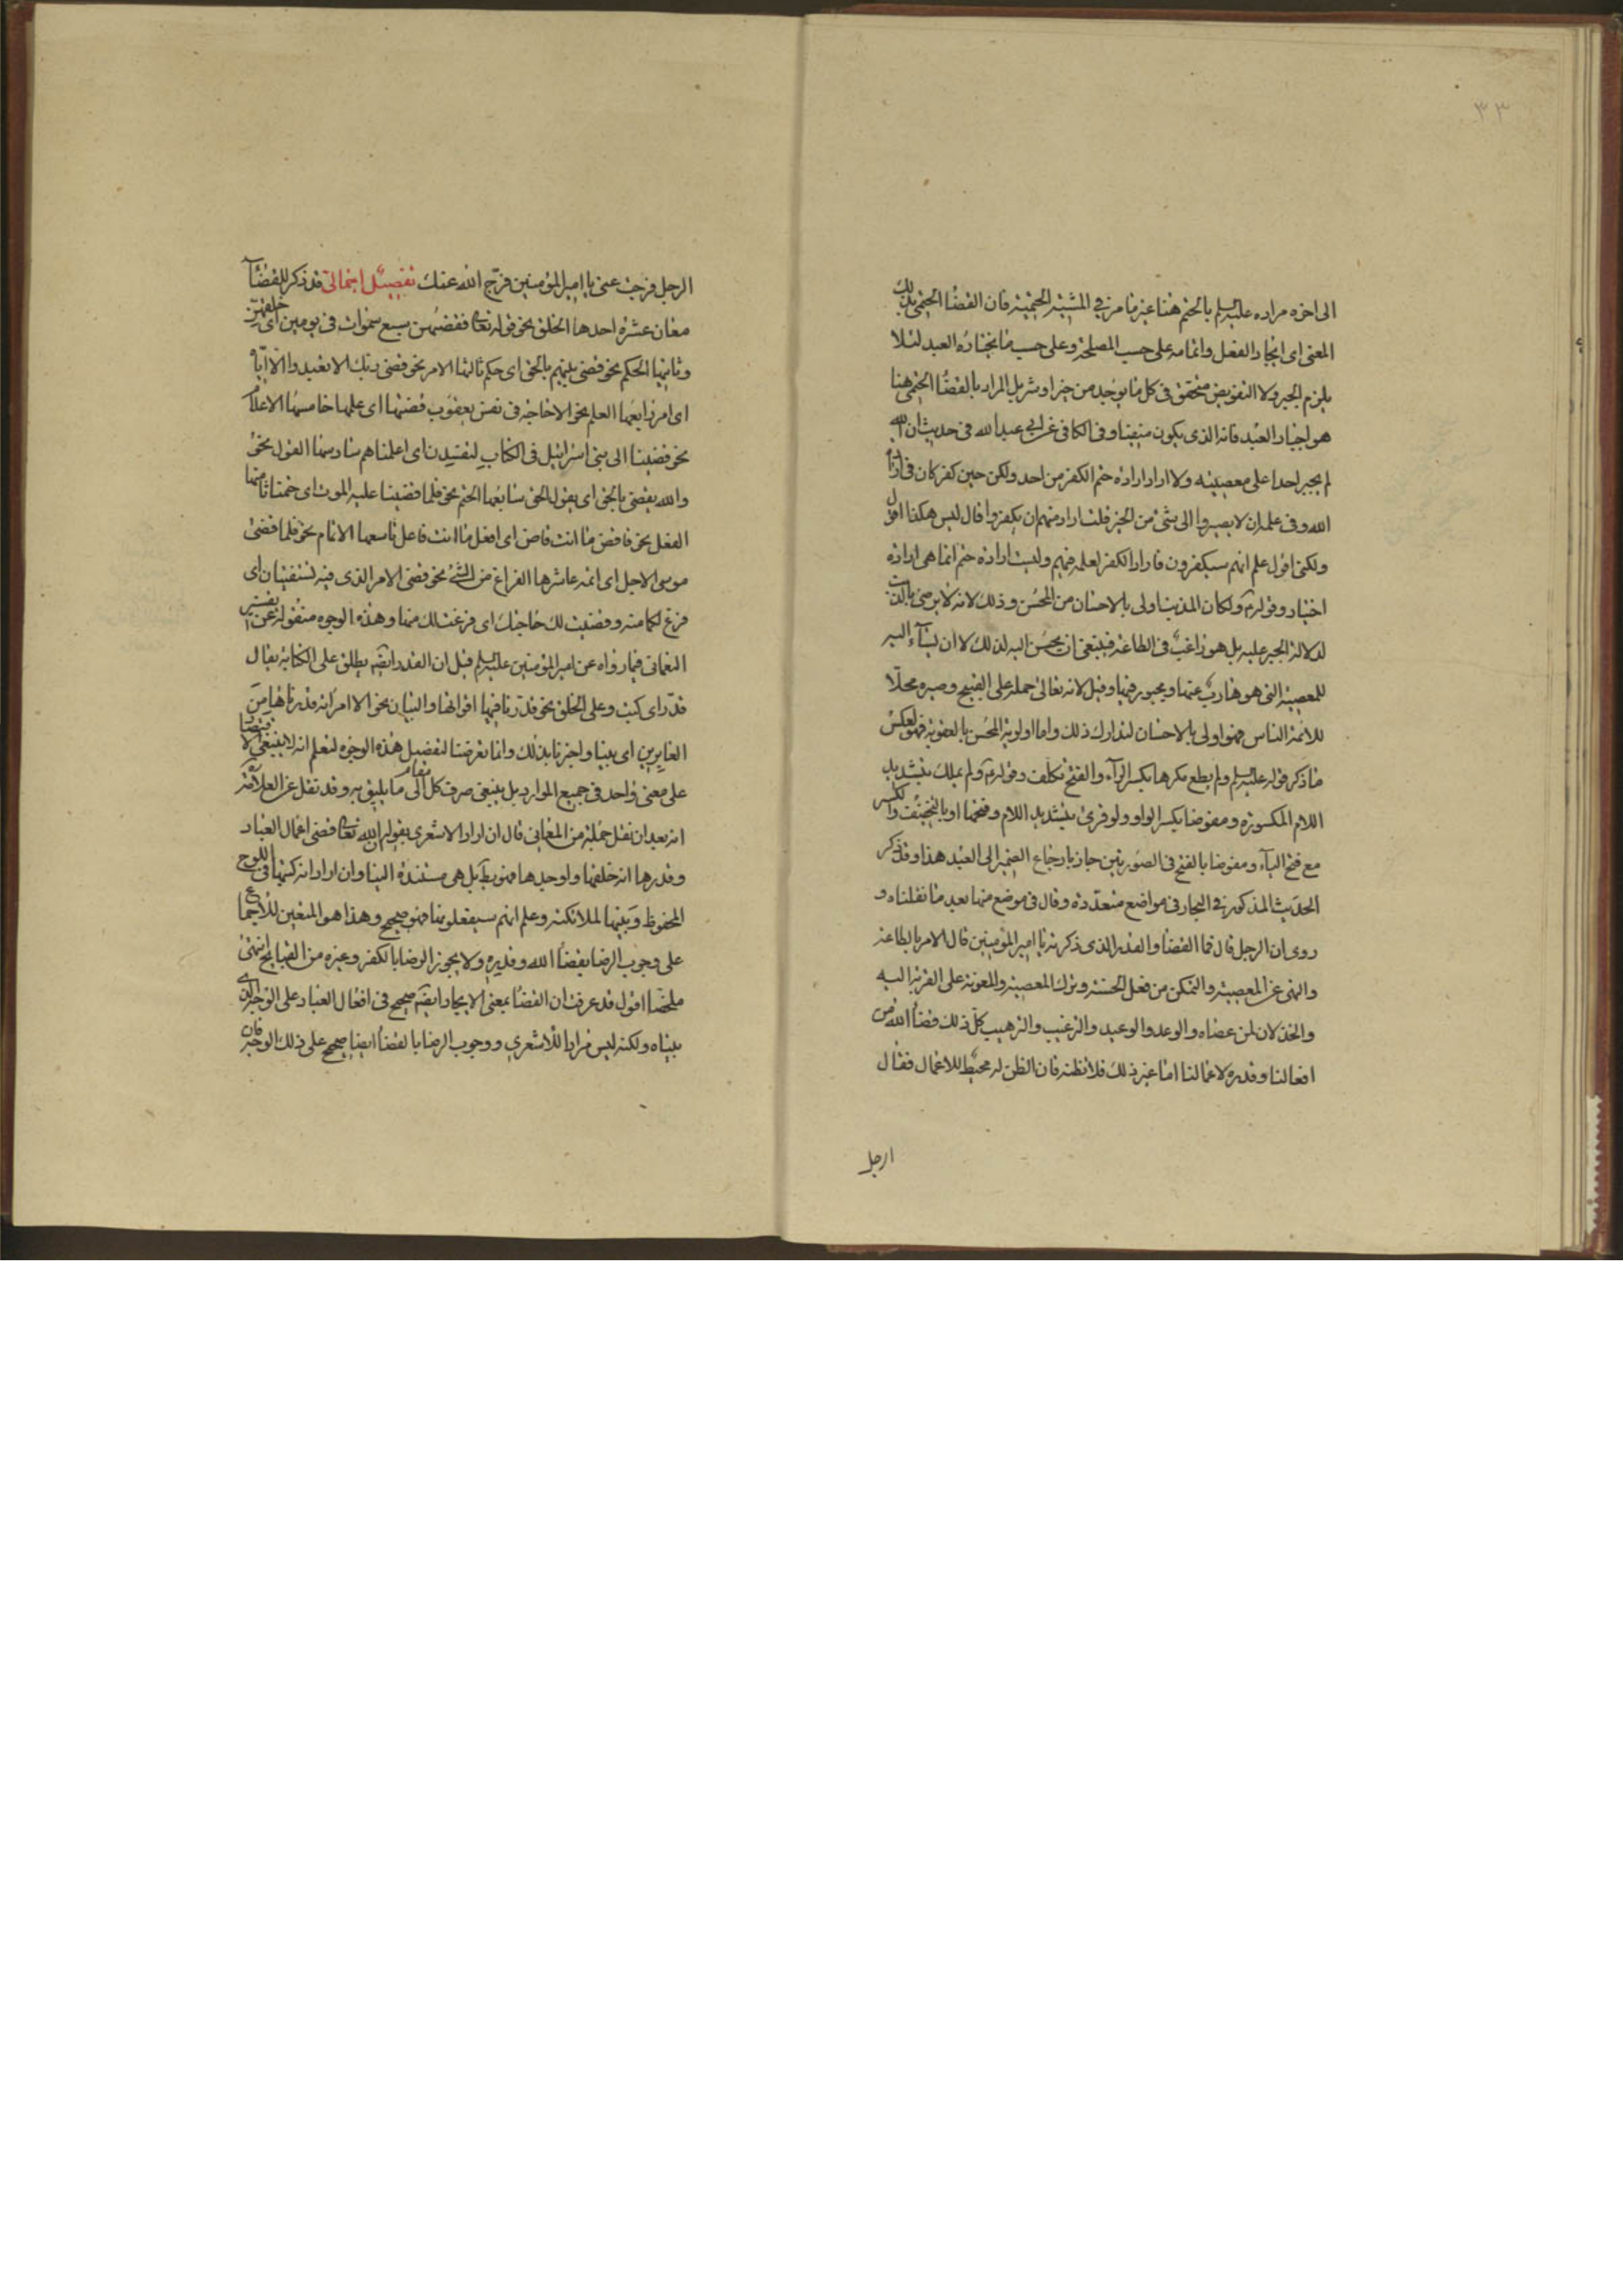 ٣٣
الى اخره مراده عليه السلم بالحتم هنا غير ما مر في المشية الحتمية فان القضا الحتمي بذلك
المعنى اى ايجاد الفعل واتمامه على حسب المصلحة وعلى حسب ما يختاره العبد لئلا
يلزم الجبر ولا التفويض متحقق فى كل ما يوجد من خير او شر بل المراد بالقضا الحتمى هنا
هو اجبار العبد فانه الذى يكون منفيا وفى الكافى عن ابي عبد الله فى حديث ان الله
لم يجبر احدا على معصيته ولا اراد ارادة حتم الكفر من احد ولكن حين كفر كان فى ارادة
الله وفى علمه ان لا يصيروا الى شئ من الخير قلت اراد منهم ان يكفروا قال ليس هكذا اقول
ولكنى اقول علم انهم سيكفرون فاراد الكفر لعلمه فيهم وليست ارادة حتم انما هى ارادة
اختيار وقوله ولكان المذنب اولى بالاحسان من المحسن وذلك لانه لا يرضى بالذنب
لدلالة الجبر عليه بل هو راغب فى الطاعة فينبغى ان يحسن اليه لذلك لا ان يساء اليه
للمعصية التى هو هارب عنها ومجبور فيها وقيل لانه تعالى حمله على القبيح وصيره محلا
للائمة الناس فهو اولى بالاحسان لتدارك ذلك واما اولوية المحسن بالعقوبة فهو لعكس
ما ذكر قوله عليه السلم ولم يطع مكرها بكسر الراء والفتح تكلف وقوله ولم يملك بتشديد
اللام المكسورة ومفوضا بكسر الواو ولو قرئ بتشديد اللام وفتحها او بالتخفيف والكسر
مع فتح الياء ومفوضا بالفتح فى الصورتين جاز بارجاع الضمير الى العبد هذا وقد ذكر
الحديث المذكور في البحار فى مواضع متعددة وقال فى موضع منها بعد ما نقلناه و
روى ان الرجل قال فما القضا والقدر الذى ذكرته يا امير المؤمنين قال الامر بالطاعة
والنهى عن المعصية والتمكن من فعل الحسنة وترك المعصية والمعونة على القربة اليه
والخذلان لمن عصاه والوعد والوعيد والترغيب والترهيب كل ذلك قضا الله فى
افعالنا وقدره لاعمالنا اما غير ذلك فلا تظنه فان الظن له محيط للاعمال فقال
ارجل
الرجل فرجت عنى يا امير المؤمنين فرج الله عنك تفصيل اجمالى قد ذكر للقضاء
معان عشرة احدها الخلق نحو قوله تعا فقضيهن سبع سموات فى يومين اى خلقهن
وثانيها الحكم نحو قضى بينهم بالحق اى حكم ثالثها الامر نحو قضى ربك الا تعبدوا الا اياه
اى امر رابعها العلم نحو الا حاجة فى نفس يعقوب قضيها اى علمها خامسها الاعلام
نحو قضينا الى بنى اسرائيل فى الكتاب لتفسدن اى اعلمناهم سادسها القول نحو
والله يقضى بالحق اى يقول الحق سابعها الحتم نحو فلما قضينا عليه الموت اى حتمنا ثامنها
الفعل نحو فاقض ما انت قاض اى افعل ما انت فاعل تاسعها الاتمام نحو فلما قضى
موسى الاجل اى اتمه عاشرها الفراغ من الشئ نحو قضى الامر الذى فيه تستفتيان اى
فرغ لكما منه وقضيت لك حاجتك اى فرغت لك منها وهذه الوجوه منقولة عن تفسير
النعمانى فيما رواه عن امير المؤمنين عليه السلم قيل ان القدر ايضا يطلق على الكتابة يقال
قدر اى كتب وعلى الخلق نحو قدر فيها اقواتها والبيان نحو الا امراته قدرناها من
الغابرين اى بينا واخبرنا بذلك وانما تعرضنا لتفصيل هذه الوجوه لتعلم انه لا ينبغى الاقتصار
على معنى واحد فى جميع الموارد بل ينبغى صرف كل مقام الى ما يليق به وقد نقل عن العلامة
انه بعد ان نقل جملة من المعانى قال ان اراد الاشعرى بقوله ان الله تعا قضى اعمال العباد
وقدرها انه خلقها واوجدها فهو بط بل هى مستندة الينا وان اراد انه كتبها فى اللوح
المحفوظ وبينها لملائكته وعلم انهم سيفعلونها فهو صحيح وهذا هو المتعين للاجماع
على وجوب الرضا بقضا الله وقدره ولا يجوز الرضا بالكفر وغيره من القبايح انتهى
ملخصا اقول قد عرفت ان القضا بمعنى الايجاد ايضا صحيح فى افعال العباد على الوجه الذى
بيناه ولكنه ليس مرادا للاشعرى ووجوب الرضا بالقضا ايضا صحيح على ذلك الوجه فان